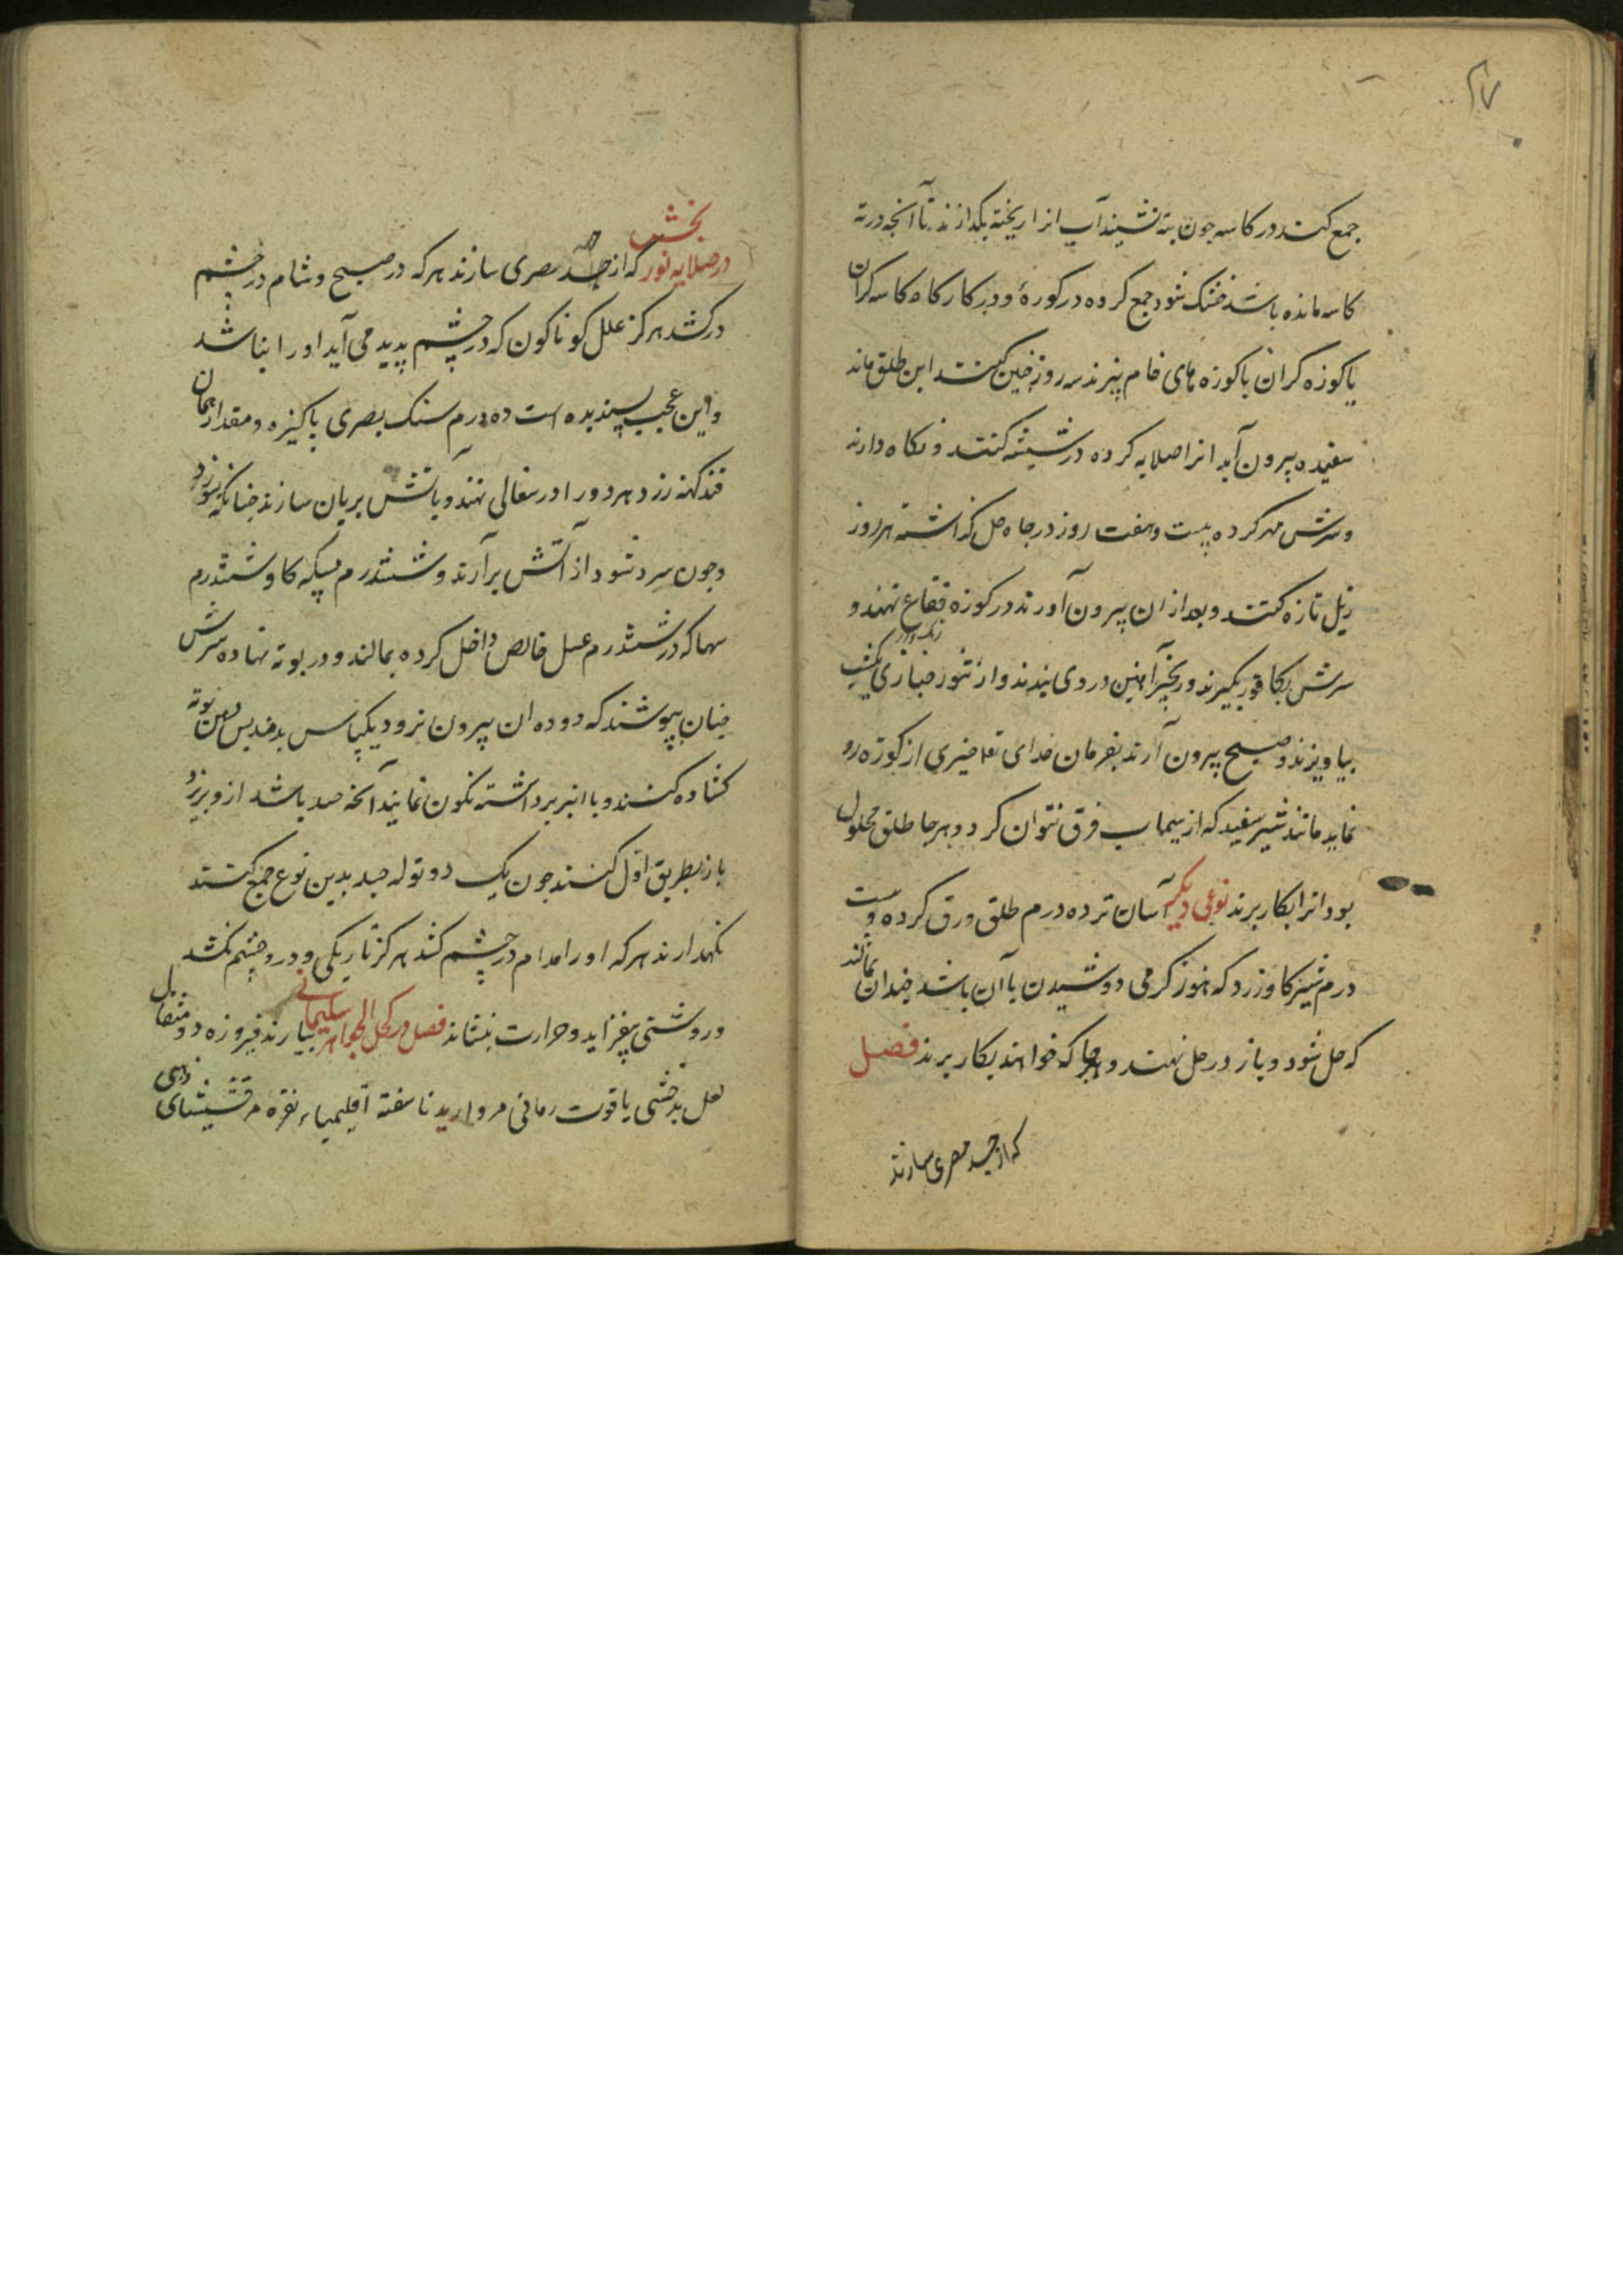 ۲۷
جمع کنند در کاسه جون بته نشیند آب انرا ریخته بکدارند تا انجه درته
کاسه مانده باشد خشک شود جمع کرده در کورهٔ و در کارکاه کاسه کران
یا کوزه کران با کوزه های خام پزند سه روز جنین کنند این طلق ماند
سفیده بیرون آید انرا صلایه کرده در شیشه کنند و نکاه دارند
و سرش مهر کرده بیست و هفت روز در جاه حل کذاشته هر روز
زبل تازه کنند و بعد از ان بیرون آورند در کوزه فقاع نهند و
سرش بکا بکیرند و زنجیر آهنین در وی بندند و از تنور خبازی
بیاویزند و صبح بیرون آرند بفرمان خدای تعا جیزی از کوزه رو
نماید مانند شیر سفید که از سیماب فرق نتوان کرد و هرجا طلق محلول
بود انرا بکار برند نوعی دیکر آسان تر ده درم طلق ورق کرده و بیست
درم شیر کاو زرد که هنوز کرمی دوشیدن با آن باشد جندان بمالند
که حل شود و باز در حل نهند و هرجا که خواهند بکار برند فصل
که از جسد مصری سازند
بخش
در صلایه نور که از جسد مصری سازند هر که در صبح و شام در چشم
درکشد هرکز علل کوناکون که در چشم پدید می آید او را نباشد
و این عجب پسندیده است ده درم سنک بصری پاکیزه و مقدار همان
قند کهنه زرد هر دو را در سفالی نهند و باتش بریان سازند جنانکه بسوزد
وجون سرد شود از آتش برآرند و شش درم مسکه کاو و شش درم
سهاکه در شش درم عسل خالص داخل کرده بمالند و در بوته نهاده سرش
جنان بپوشند که دود ان بیرون نرود یکپاس بدمند پس دهن بوته
کشاده کنند و با انبر برداشته نکون نمایند آنجه جسد باشد ازو بریزد
باز بطریق اول کنند جون یک دو توله جسد بدین نوع جمع کنند
نکهدارند هر که او را مدام در چشم کشد هرکز تاریکی و درد چشم نکشد
و روشنی بیفزاید و حرارت بنشاند فصل در کحل الجواهر سلیمانی بیارند فیروزه دو مثقال
لعل بدخشی یاقوت رمانی مروارید ناسفته اقلیمیاء نقره مرقشیشای ذهبی